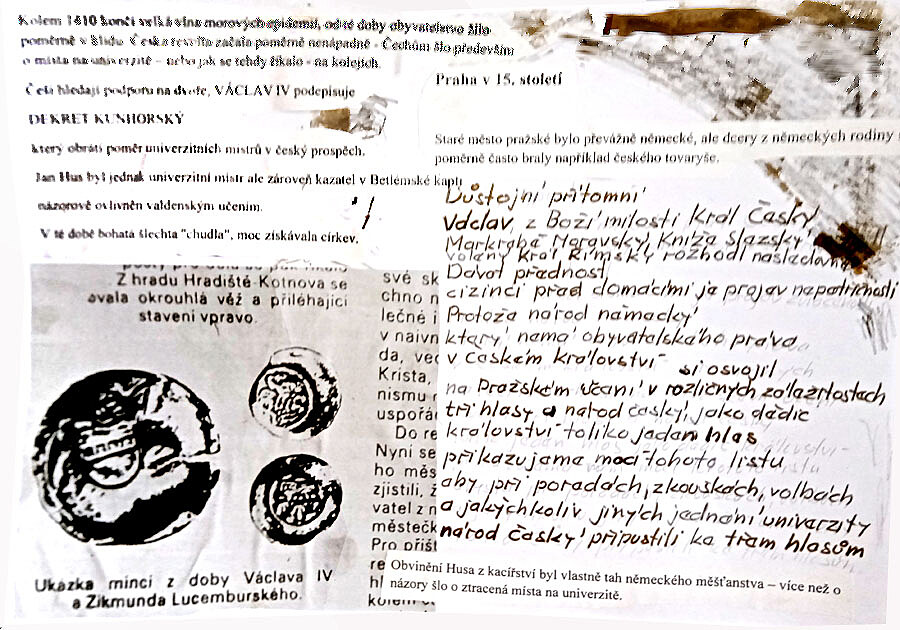 Kolem 1410 končí velká vlna morových epidemií, od té doby obyvatelstvo žilo
poměrně v klidu. Česká revolta začala poměrně nenápadně - Čechům šlo především
o místa na univerzitě - nebo jak se tehdy říkalo - na kolejích.
Češi hledají podporu na dvoře, VÁCLAV IV podepisuje
DEKRET KUNHORSKÝ
který obrátí poměr univerzitních mistrů v český prospěch.
Jan Hus byl jednak univerzitní mistr ale zároveň kazatel v Betlémské kapli
názorově ovlivněn valdenským učením.
V té době bohatá šlechta "chudla", moc získávala církev.
Praha v 15. století
Staré město pražské bylo převážně německé, ale dcery z německých rodiny
poměrně často braly například českého tovaryše.
Důstojní přítomní
Václav, z Boží milosti Král Český
Markrabě Moravský, Kníža Slazský
volený Král Římský rozhodl následovně
Dávat přednost
cizinci před domácími ja projav napatřičnosti
Protoža národ německý
který nemá obyvatalského práva
v Českém království si osvojil
na Pražském Učaní v rozličných zálažitostach
tři hlasy a národ český, jako dědic
království toliko jadan hlas
přikazujama mocí tohoto listu
aby při poradách, zkouškách, volbách
a jakýchkoliv jiných jednání univerzity
národ Český připustili ka třam hlasům
Obvinění Husa z kacířství byl vlastně tah německého měšťanstva – více než o
názory šlo o ztracená místa na univerzitě.
Z hradu Hradiště-Kotnova se
ovala okrouhlá věž a přiléhající
stavení vpravo.
Ukázka mincí z doby Václava IV
a Zikmunda Lucemburského.
své sk
chno n
lečné i
v naivn
da, ved
Krista,
nismu
uspořá
Do re
Nyní se
ho měs
zjistili, ž
vatel z n
městečk
Pro příšt
re
hl
kolem